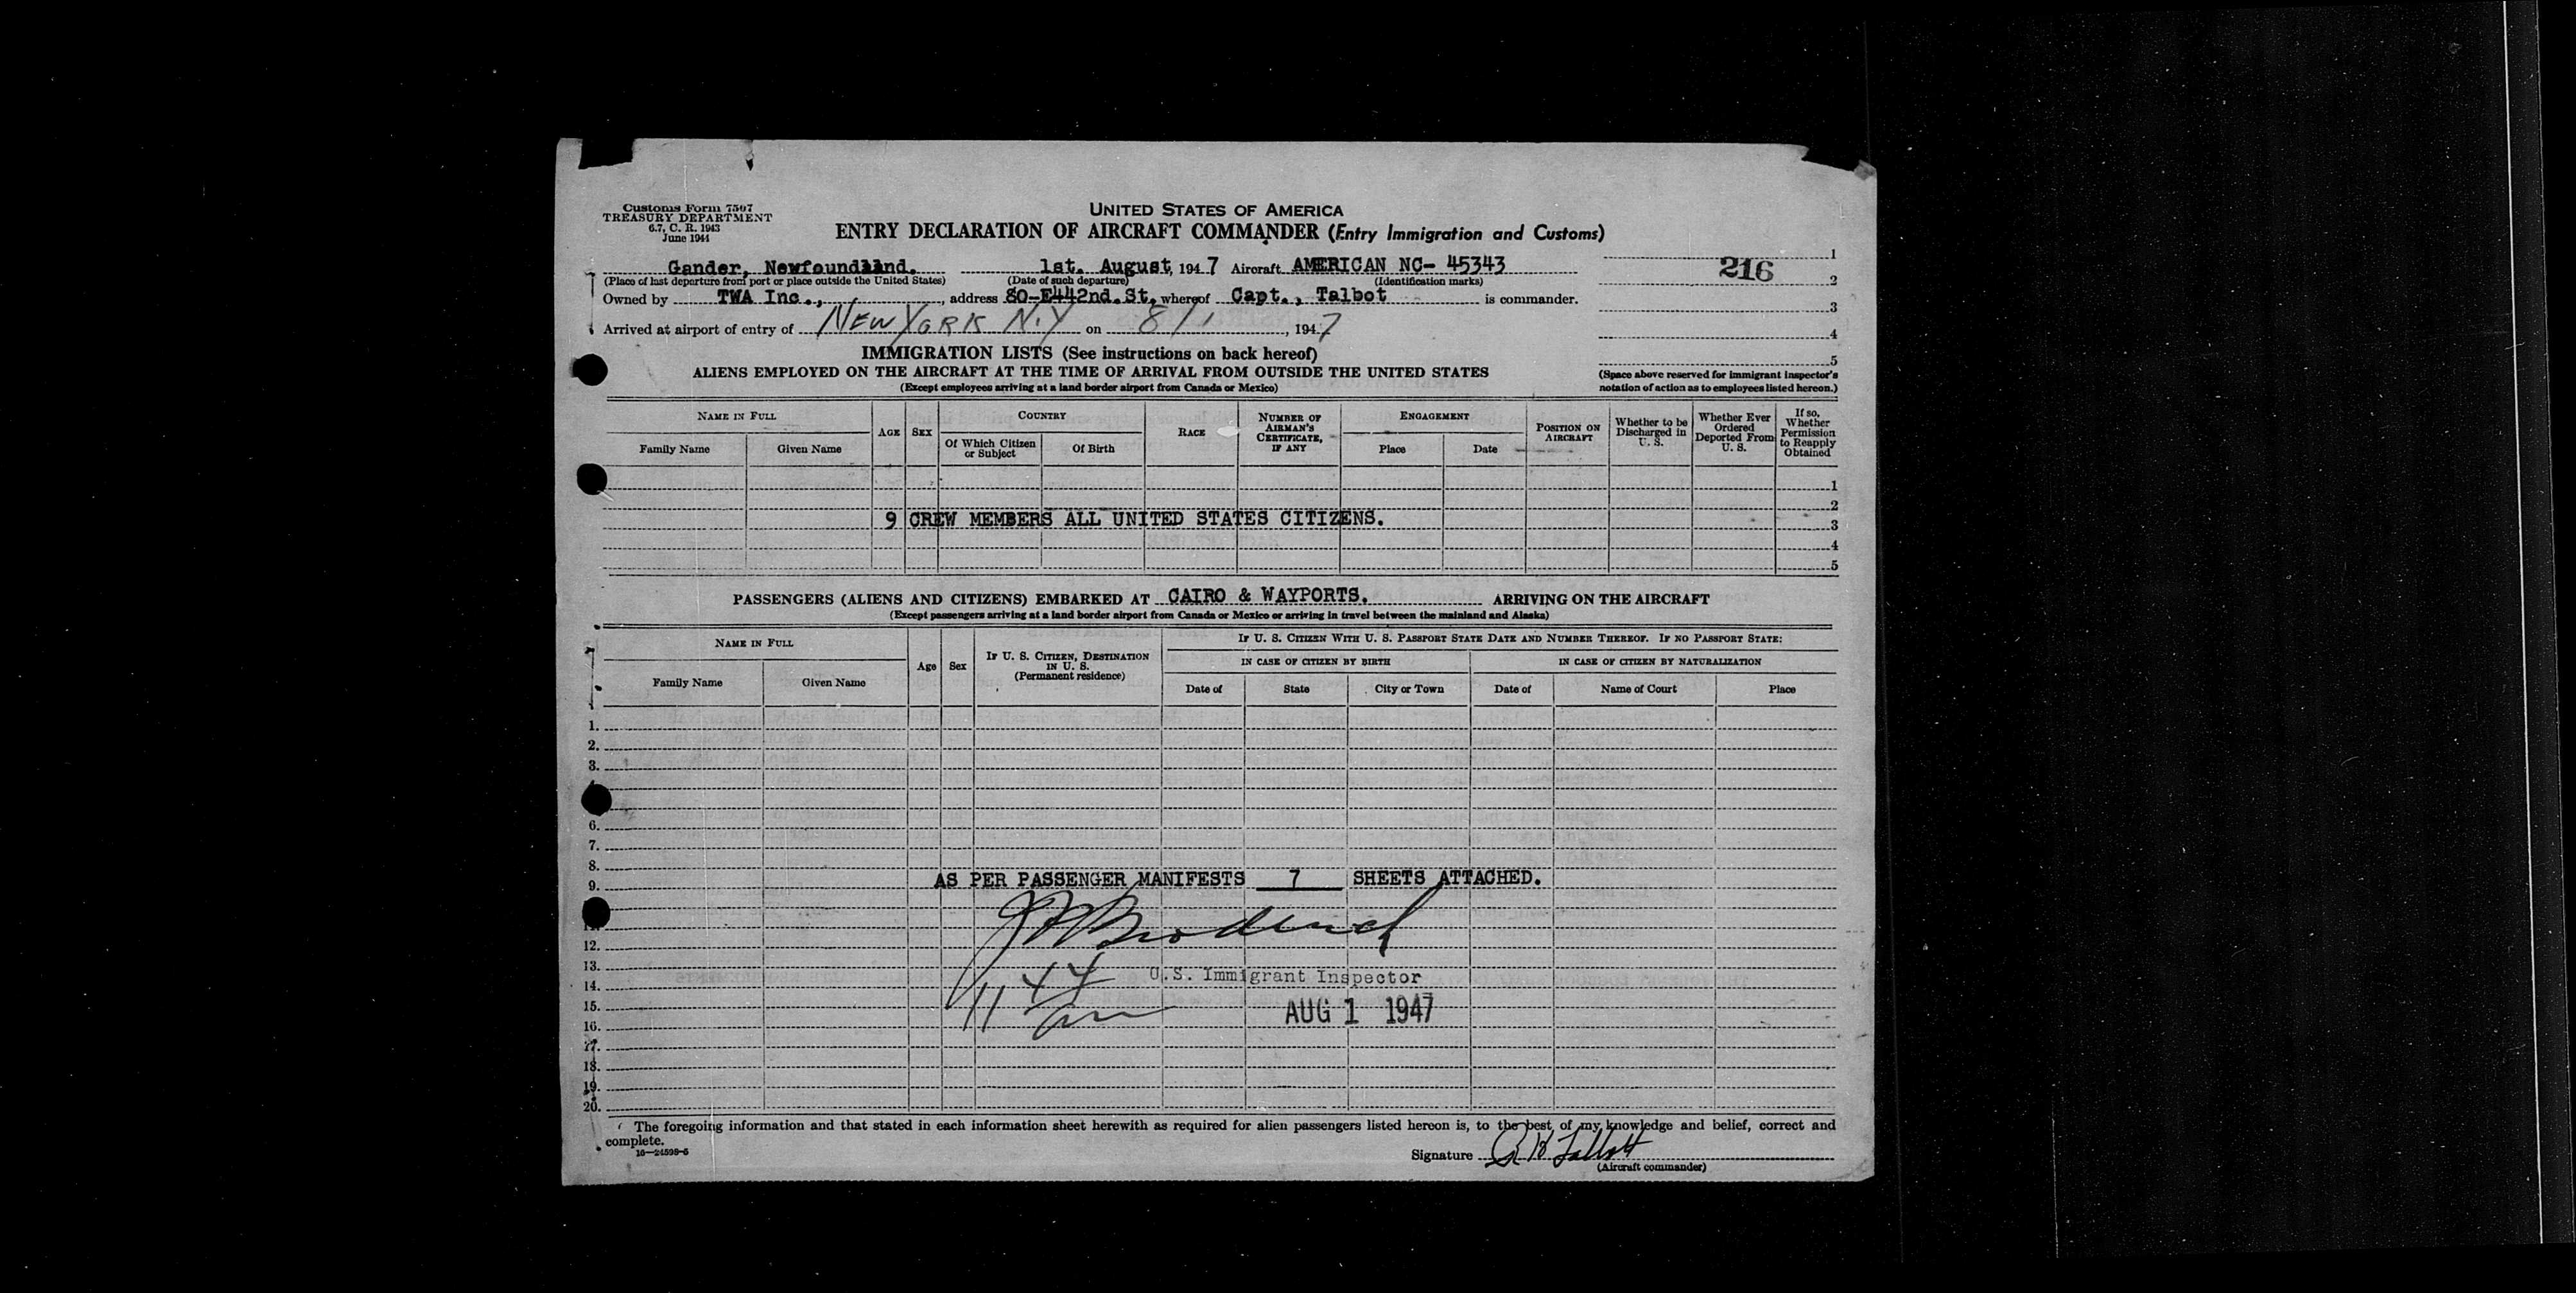 Customs Form 7507
TREASURY DEPARTMENT
6.7, C. R. 1943
June 1944
UNITED STATES OF AMERICA
ENTRY DECLARATION OF AIRCRAFT COMMANDER (Entry Immigration and Customs)
Gander, Newfoundland. 1st. August, 1947 Aircraft AMERICAN NC- 45343
(Place of last departure from port or place outside the United States) (Date of such departure) (Identification marks)
Owned by TWA Inc., , address 80-E442nd.St. whereof Capt., Talbot is commander.
Arrived at airport of entry of NEW YORK N.Y on 8/1, 1947
216
1
2
3
4
5
(Space above reserved for immigrant inspector's
notation of action as to employees listed hereon.)
IMMIGRATION LISTS (See instructions on back hereof)
ALIENS EMPLOYED ON THE AIRCRAFT AT THE TIME OF ARRIVAL FROM OUTSIDE THE UNITED STATES
(Except employees arriving at a land border airport from Canada or Mexico)
NAME IN FULL
Family Name Given Name
AGE SEX
COUNTRY
Of Which Citizen or Subject Of Birth
RACE
NUMBER OF AIRMAN'S CERTIFICATE, IF ANY
ENGAGEMENT
Place Date
POSITION ON AIRCRAFT
Whether to be Discharged in U. S.
Whether Ever Ordered Deported From U. S.
If so, Whether Permission to Reapply Obtained
1
2
9 CREW MEMBERS ALL UNITED STATES CITIZENS. 3
4
5
PASSENGERS (ALIENS AND CITIZENS) EMBARKED AT CAIRO & WAYPORTS. ARRIVING ON THE AIRCRAFT
(Except passengers arriving at a land border airport from Canada or Mexico or arriving in travel between the mainland and Alaska)
NAME IN FULL
Family Name Given Name
Age Sex
IF U. S. CITIZEN, DESTINATION IN U. S.
(Permanent residence)
IF U. S. CITIZEN WITH U. S. PASSPORT STATE DATE AND NUMBER THEREOF. IF NO PASSPORT STATE:
IN CASE OF CITIZEN BY BIRTH IN CASE OF CITIZEN BY NATURALIZATION
Date of State City or Town Date of Name of Court Place
1.
2.
3.
6.
7.
8.
9. AS PER PASSENGER MANIFESTS 7 SHEETS ATTACHED.
11.
12.
13.
14. U.S. Immigrant Inspector
11 44
15. AUG 1 1947
16.
17.
18.
19.
20.
The foregoing information and that stated in each information sheet herewith as required for alien passengers listed hereon is, to the best of my knowledge and belief, correct and
complete.
16—24598-5
Signature
(Aircraft commander)